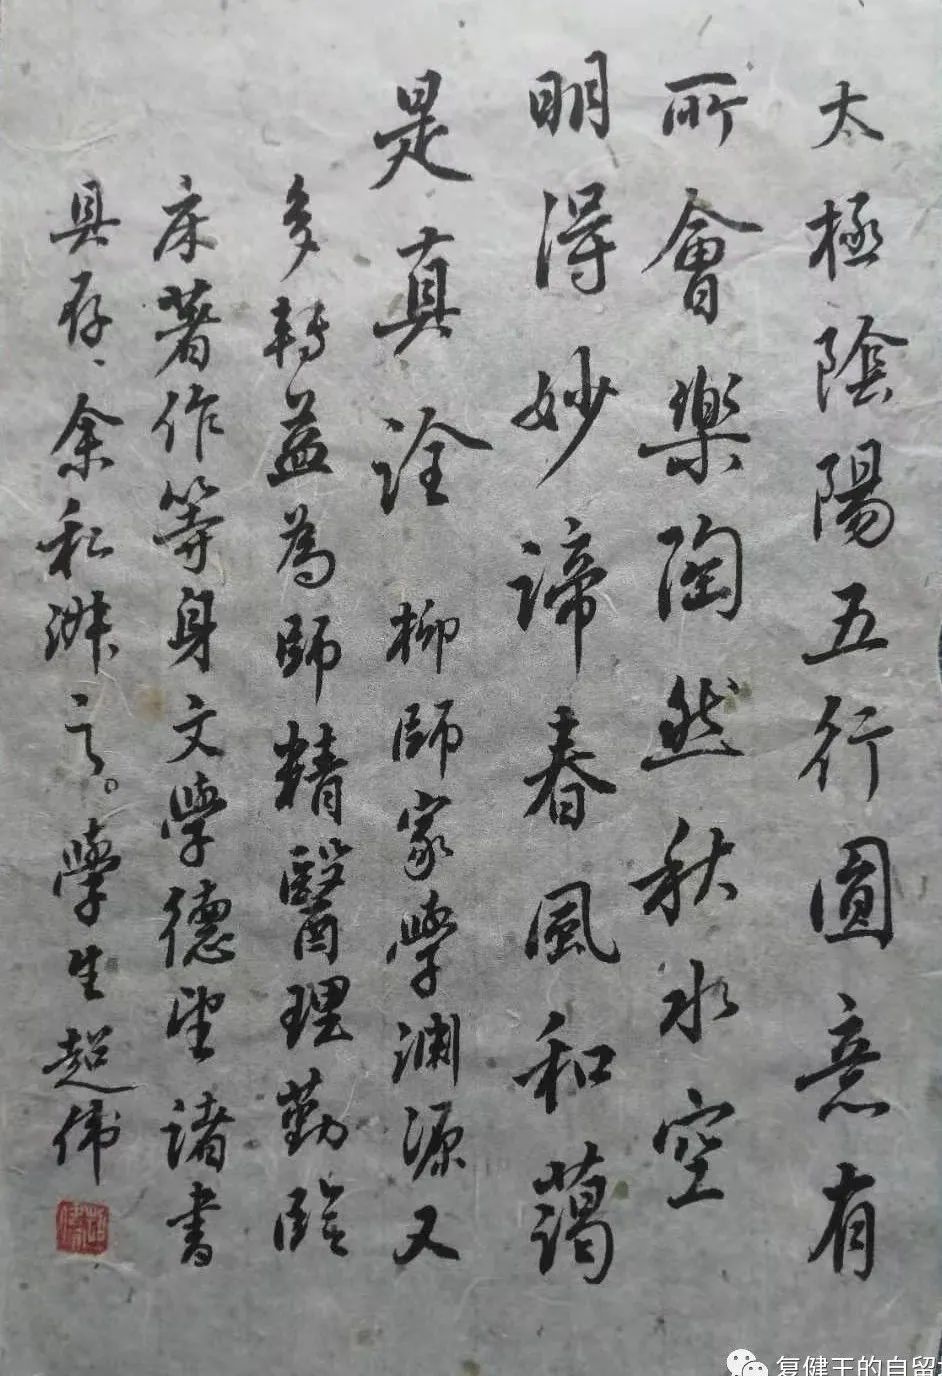 太極陰陽五行圓意有
所會樂陶然秋水空
明得妙諦春風和藹
是真詮 柳師家學淵源又
多轉益為師精醫理勤臨
床著作等身文學德望諸書
具存、余私淑之。學生超偉
复健王的自留